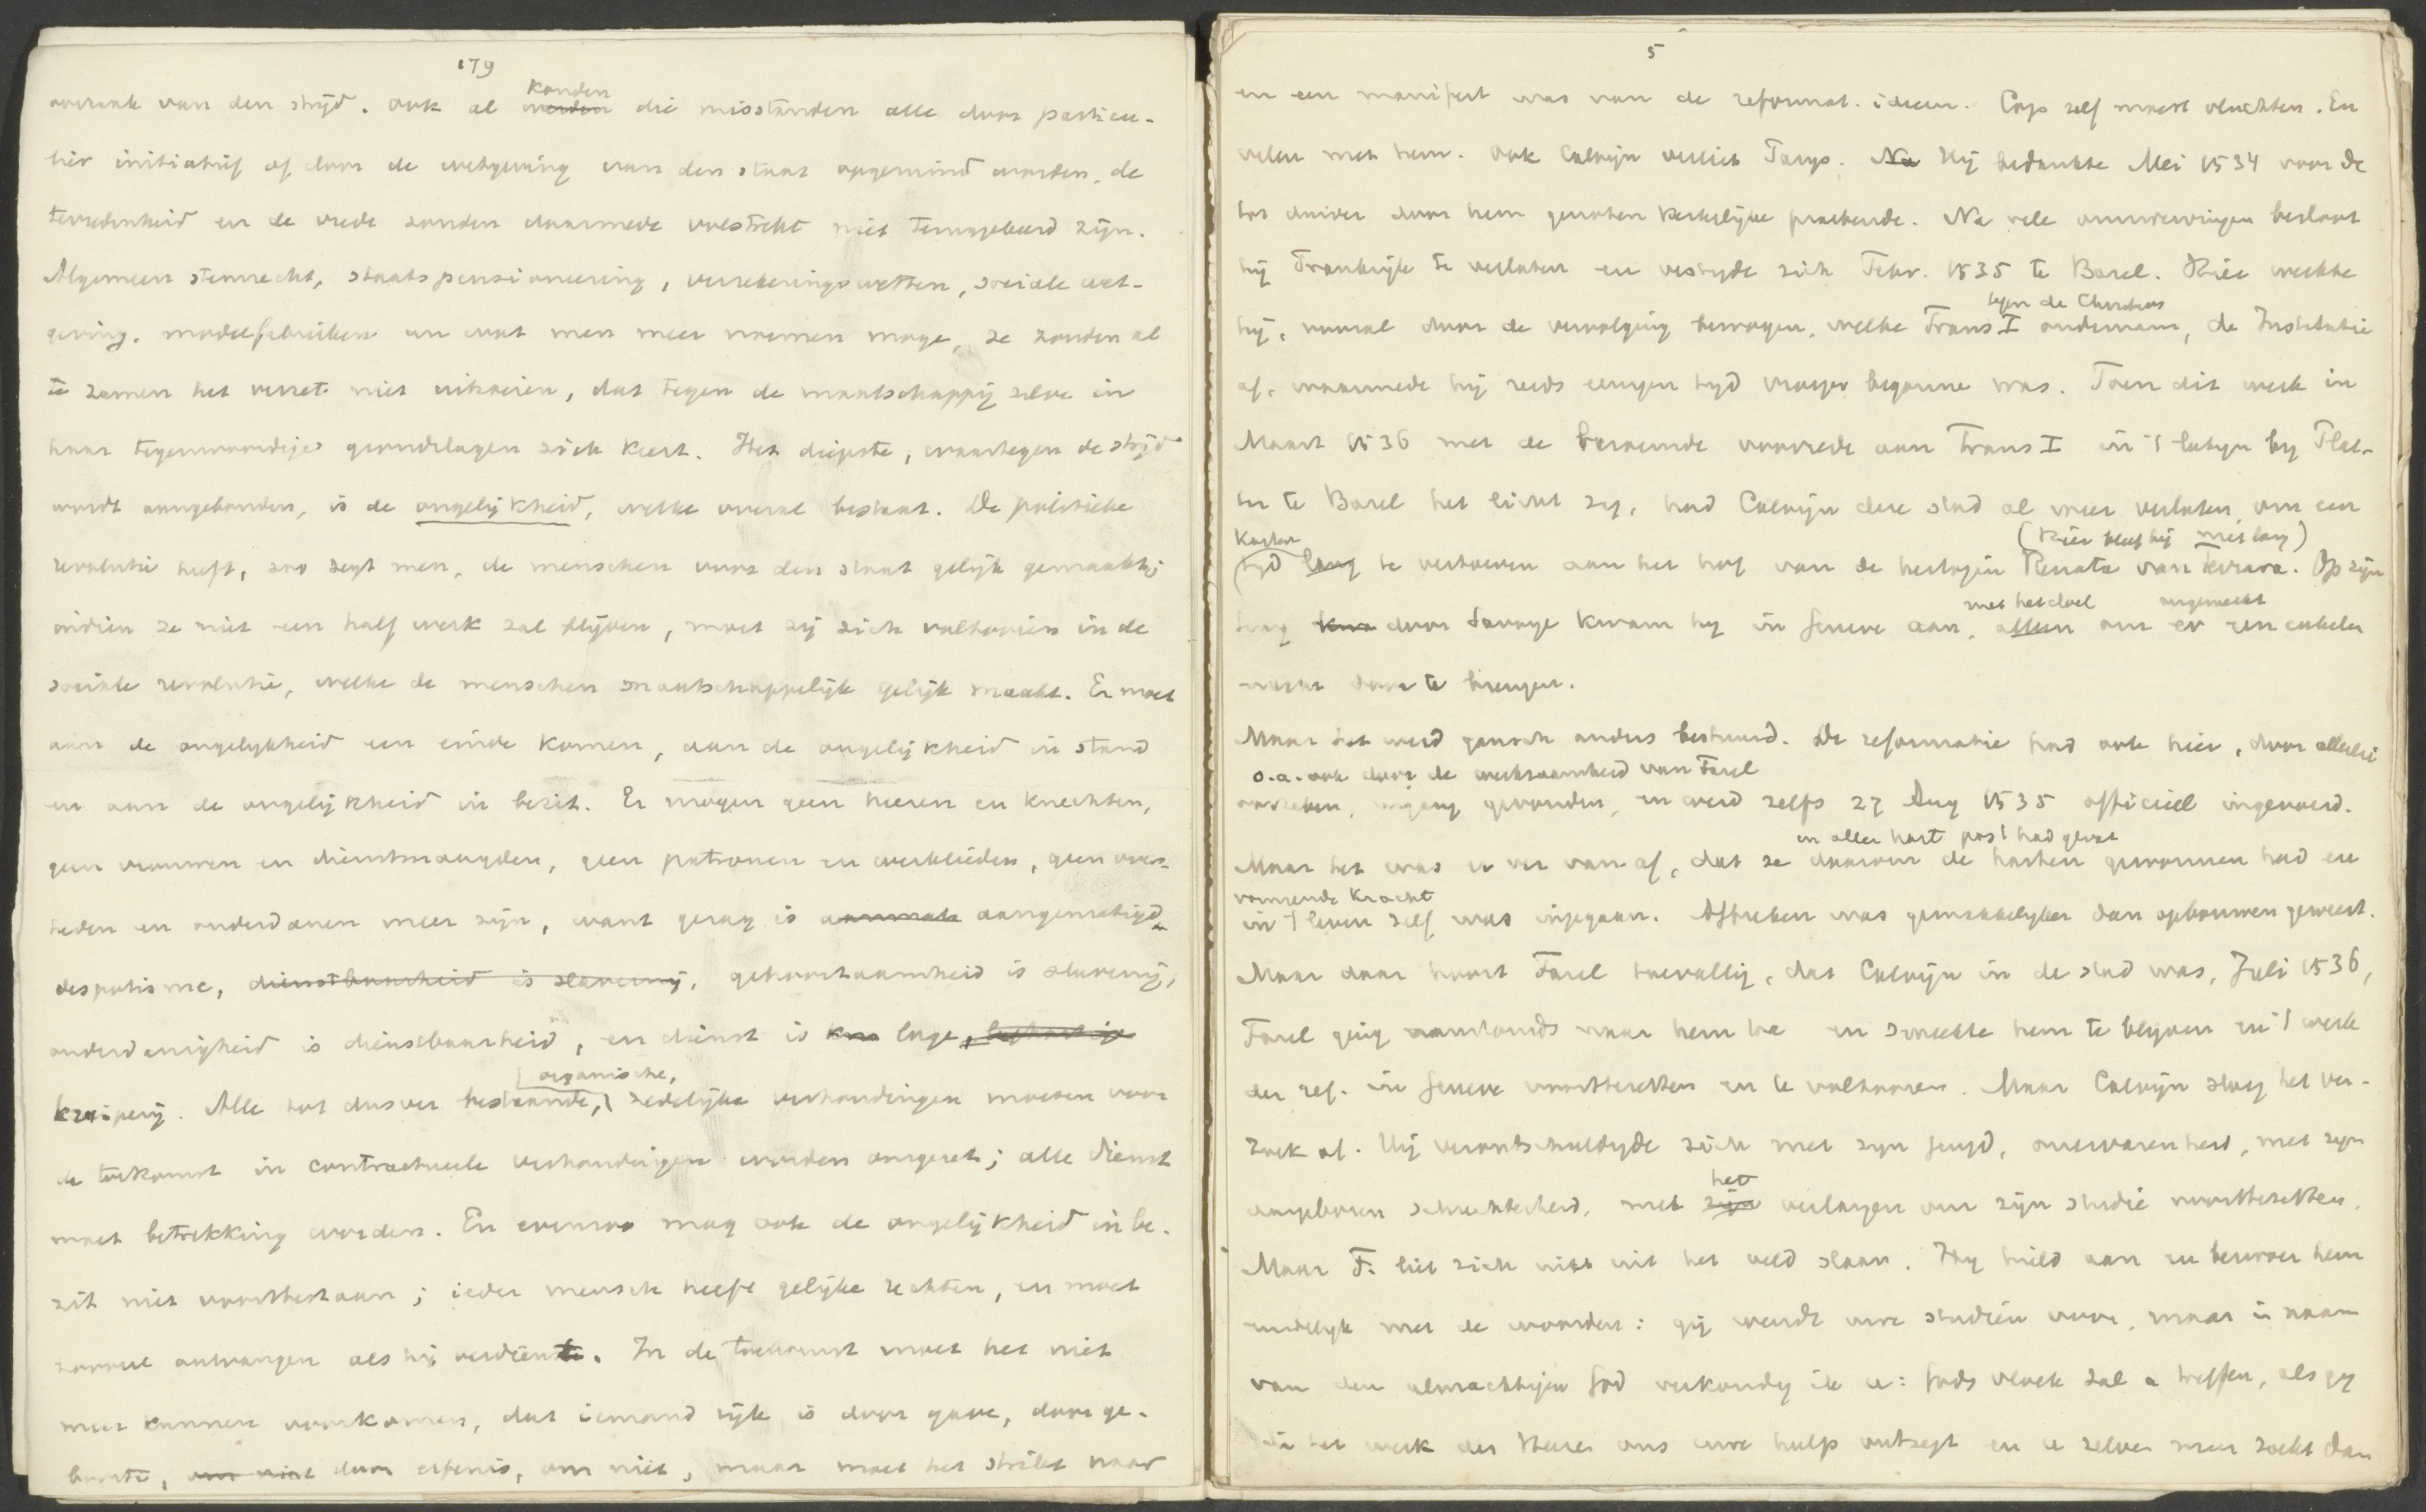 179
oorzaak van den strijd. Ook al konden
werden die misstanden alle door particu-
lier initiatief of door de wetgeving van den staat opgeruimd worden, de
tevredenheid en de vrede zouden daarmede volstrekt niet teruggekeerd zijn.
Algemeen stemrecht, staatspensioneering, verzekeringswetten, sociale wet-
geving, modelfabrieken en wat men meer noemen moge, ze zouden al
te zamen het verzet niet uitroeien, dat tegen de maatschappij zelve in
haar tegenwoordige grondslagen zich keert. Het diepste, waartegen de strijd
wordt aangebonden, is de ongelijkheid, welke overal bestaat. De politieke
revolutie heeft, zoo zegt men, de menschen voor den staat gelijk gemaakt;
indien ze niet een half werk zal blijven, moet zij zich voltooien in de
sociale revolutie, welke de menschen maatschappelijk gelijk maakt. Er moet
aan de ongelijkheid een einde komen, aan de ongelijkheid in stand
en aan de ongelijkheid in bezit. Er mogen geen heeren en knechten,
geen vrouwen en dienstmaagden, geen patronen en werklieden, geen over-
heden en onderdanen meer zijn, want gezag is aanmati aangematigd
despotisme, dienstbaarheid is slavernij, gehoorzaamheid is slavernij,
onderdanigheid is dienstbaarheid, en dienst is kru lage,
kruiperij. Alle tot dusver bestaande, organische, zedelijke verhoudingen moeten voor
de toekomst in contractueele verhoudingen worden omgezet; alle dienst
moet betrekking worden. En evenzoo mag ook de ongelijkheid in be-
zit niet voortbestaan; ieder mensch heeft gelijke rechten, en moet
zooveel ontvangen als hij verdient. In de toekomst moet het niet
meer kunnen voorkomen, dat iemand rijk is door gave, door ge-
boorte, om niet door erfenis, om niet, maar moet het strikt naar
5
en een manifest was van de reformat. ideeen. Cop zelf moest vluchten. En
velen met hem. Ook Calvijn verliet Parijs. Na Hij bedankte Mei 1534 voor de
tot dusver door hem genoten kerkelijke praebende. Na vele omzwervingen besloot
hij Frankrijk te verlaten en vestigde zich Febr. 1535 te Basel. Hier werkte
hij, vooral door de vervolging bewogen, welke Frans I tegen de Christenen ondernam, de Institutie
af, waarmede hij reeds eenigen tijd vroeger begonnen was. Toen dit werk in
Maart 1536 met de beroemde voorrede aan Frans I in 't latijn bij Plat-
ter te Basel het licht zag, had Calvijn deze stad al weer verlaten, om een
korten tijd lang te vertoeven aan het hof van de hertogin Renata van Ferrara. (Hier bleef hij niet lang) Op zijn
terug kwa door Savoye kwam hij in Geneve aan, alleen met het doel om er ongemerkt een enkelen
nacht door te brengen.
Maar het werd gansch anders bestuurd. De reformatie had ook hier, door allerlei
oorzaken, o.a. ook door de werkzaamheid van Farel ingang gevonden, en werd zelfs 27 Aug 1535 officieel ingevoerd.
Maar het was er ver van af, dat ze daarom de harten gewonnen had en in aller hart post had gevat
in 't leven zelf vormende kracht was ingegaan. Afbreken was gemakkelijker dan opbouwen geweest.
Maar daar hoort Farel toevallig, dat Calvijn in de stad was, Juli 1536,
Farel ging aanstonds naar hem toe en smeekte hem te blijven en 't werk
der ref. in Geneve voorttezetten en te voltooien. Maar Calvijn sloeg het ver-
zoek af. Hij verontschuldigde zich met zijn jeugd, onervarenheid, met zijn
aangeboren schuchterheid, met zijn het verlangen om zijn studie voorttezetten.
Maar F. liet zich niet uit het veld slaan. Hij hield aan en bezwoer hem
eindelijk met de woorden: gij wendt uwe studiën voor, maar in naam
van den almachtigen God verkondig ik u: Gods vloek zal u treffen, als gij
in het werk des Heeren ons uwe hulp ontzegt en u zelven meer zoekt dan